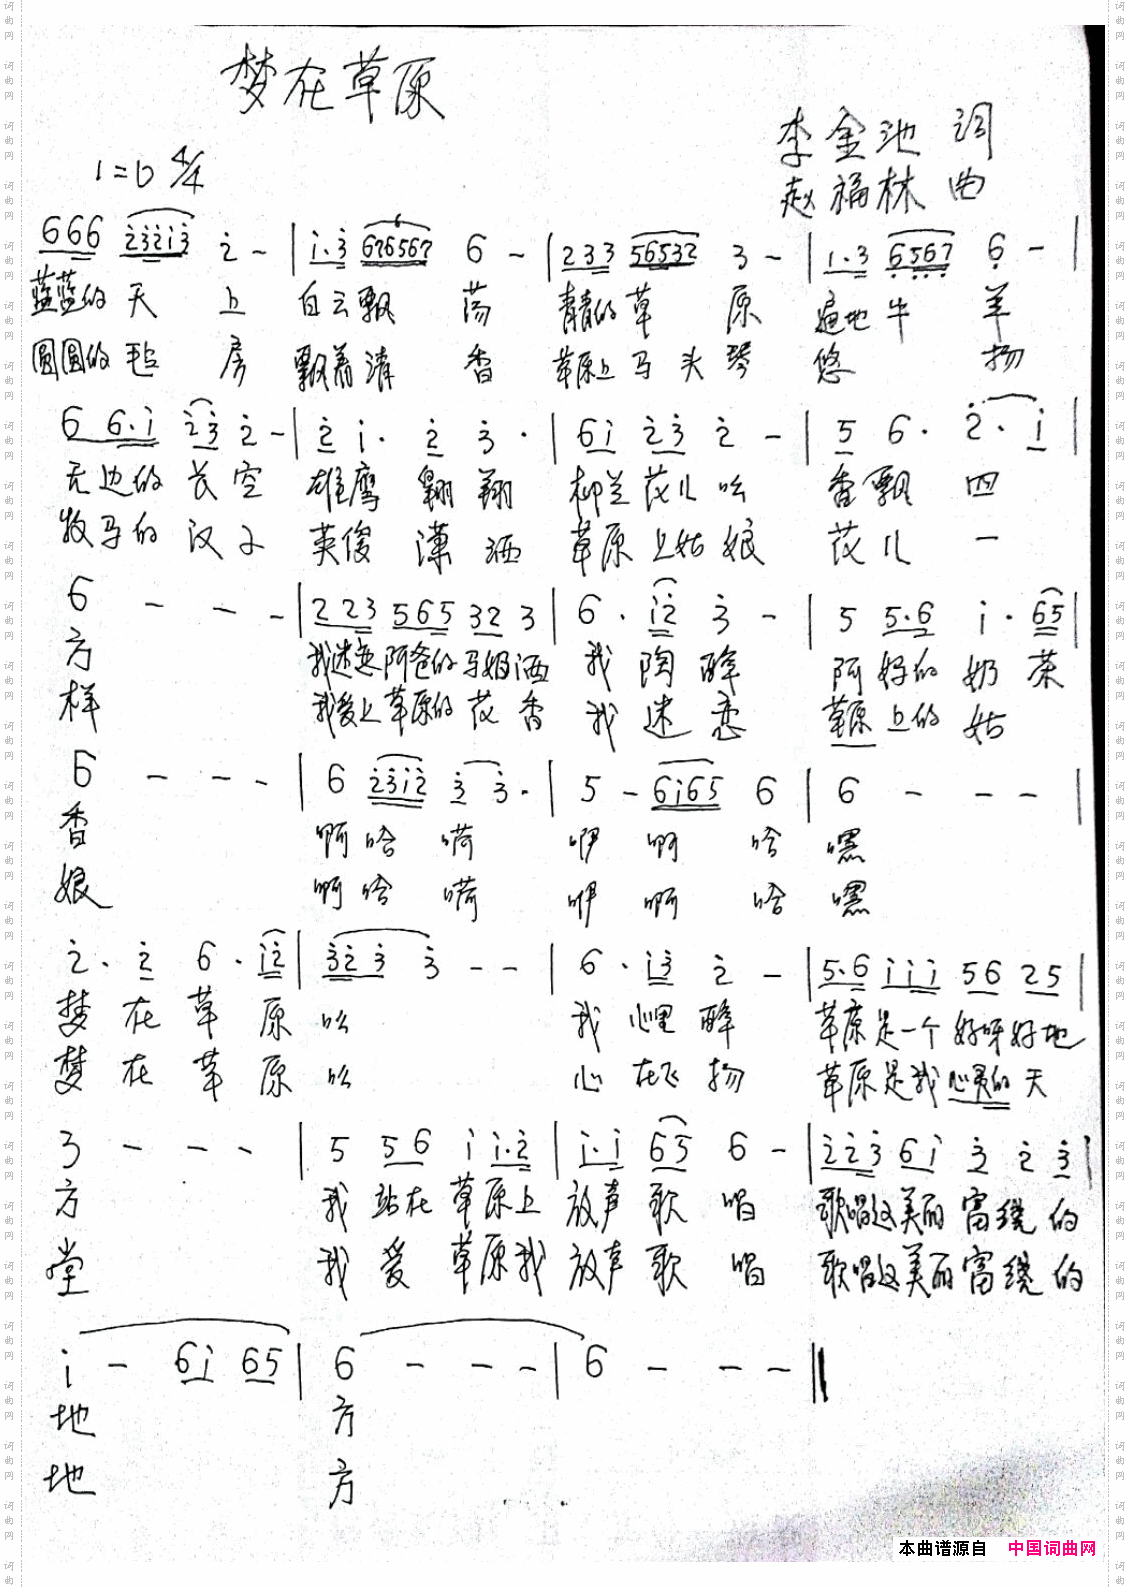 梦在草原
李金池 词
1=D 4/4
赵福林 曲
666 23213 2 - | 1·3 676567 6 - | 233 56532 3 - | 1·3 6567 6 - |
蓝蓝的天 上 白云飘 荡 青青的草 原 遍地牛 羊
圆圆的毡 房 飘着清 香 草原上马头琴 悠 扬
6 6·1 23 2 - | 2 1· 2 3· | 61 23 2 - | 5 6· 2·1 |
无边的长空 雄鹰翱翔 柳兰花儿吆 香飘四
牧马的汉子 英俊潇洒 草原上姑娘 花儿一
6 - - - | 223 565 32 3 | 6·12 3 - | 5 5·6 1·65 |
方 我迷恋阿爸的马奶洒 我陶醉 阿妈的奶茶
样 我爱上草原的花香 我迷恋 草原上的姑
6 - - - | 6 2312 3 3· | 5 - 6165 6 | 6 - - - |
香 啊哈嗬 咿啊哈 嘿
娘 啊哈嗬 咿啊哈 嘿
2·2 6·12 | 323 3 - - | 6·13 2 - | 5·6 111 56 25 |
梦在草原 吆 我心里醉 草原是一个好呀好地
梦在草原 吆 心在飞扬 草原是我心灵的天
3 - - - | 5 56 1 1·2 | 1·1 65 6 - | 223 61 3 2 3 |
方 我站在草原上 放声歌唱 歌唱这美丽富绕的
堂 我爱草原我 放声歌唱 歌唱这美丽富绕的
1 - 61 65 | 6 - - - | 6 - - - ‖
地 方
地 方
本曲谱源自 中国词曲网